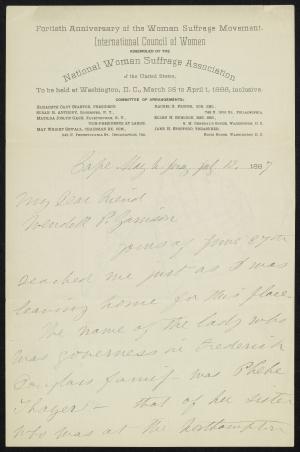 Fortieth Anniversary of the Woman Suffrage Movement.
International Council of Women
ASSEMBLED BY THE
National Woman Suffrage Association
of the United States,
To be held at Washington, D. C., March 25 to April 1, 1888, inclusive.
COMMITTEE OF ARRANGEMENTS:
ELIZABETH CADY STANTON, PRESIDENT.
SUSAN B. ANTHONY, ROCHESTER, N. Y.
MATILDA JOSLYN GAGE, FAYETTEVILLE, N. Y.
VICE-PRESIDENTS AT LARGE.
MAY WRIGHT SEWALL, CHAIRMAN EX. COM.,
RACHEL G. FOSTER, COR. SEC.,
PHILADELPHIA.
JANE H. SPOFFORD, TREASURER,
RIGGS HOUSE, WASHINGTON, D. C.
Cape May, July 12, 1887
My Dear Friend
Wendell P. Garrison
Yours of June 27th
reached me just as I was
leaving home for this place.
The name of the lady who
was governess in Frederick
Douglass family was Phebe
Thayer – that of her sister
who was at the Northampton